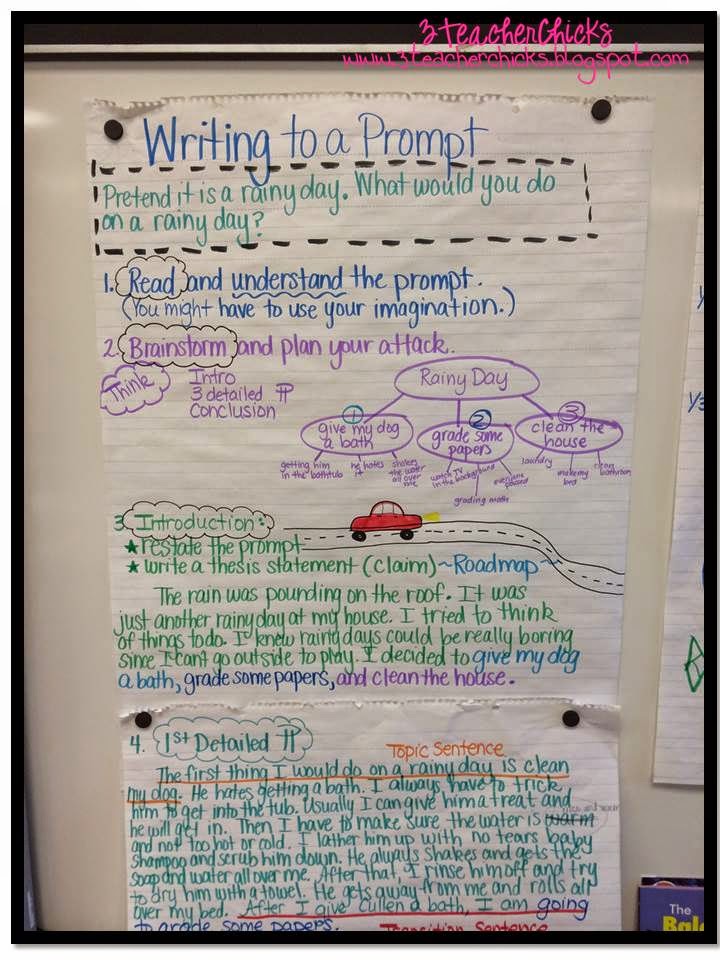 3 Teacher Chicks
www.3teacherchicks.blogspot.com
Writing to a Prompt
Pretend it is a rainy day. What would you do
on a rainy day?
1. Read and understand the prompt.
(You might have to use your imagination.)
2. Brainstorm and plan your attack.
Think
Intro
3 detailed ¶
Conclusion
Rainy Day
1
give my dog
a bath
2
grade some
papers
3
clean the
house
getting him
in the bathtub
he hates
it
shakes
the water
all over
me
watch TV
in the background
grading math
everyone
passed
laundry
make my
bed
clean
bathroom
3. Introduction:
★restate the prompt
★ write a thesis statement (claim)~Roadmap~
The rain was pounding on the roof. It was
just another rainy day at my house. I tried to think
of things to do. I knew rainy days could be really boring
since I can't go outside to play. I decided to give my dog
a bath, grade some papers, and clean the house.
4. 1st Detailed ¶
Topic Sentence
The first thing I would do on a rainy day is clean
my dog. He hates getting a bath. I always have to trick
him to get into the tub. Usually I can give him a treat and
he will get in. Then I have to make sure the water is warm
and not too hot or cold. I lather him up with no tears baby
shampoo and scrub him down. He always shakes and gets the
soap and water all over me. After that, I rinse him off and try
to dry him with a towel. He gets away from me and rolls all
over my bed. After I give Cullen a bath, I am going
to grade some papers.
Transition Sentence
The